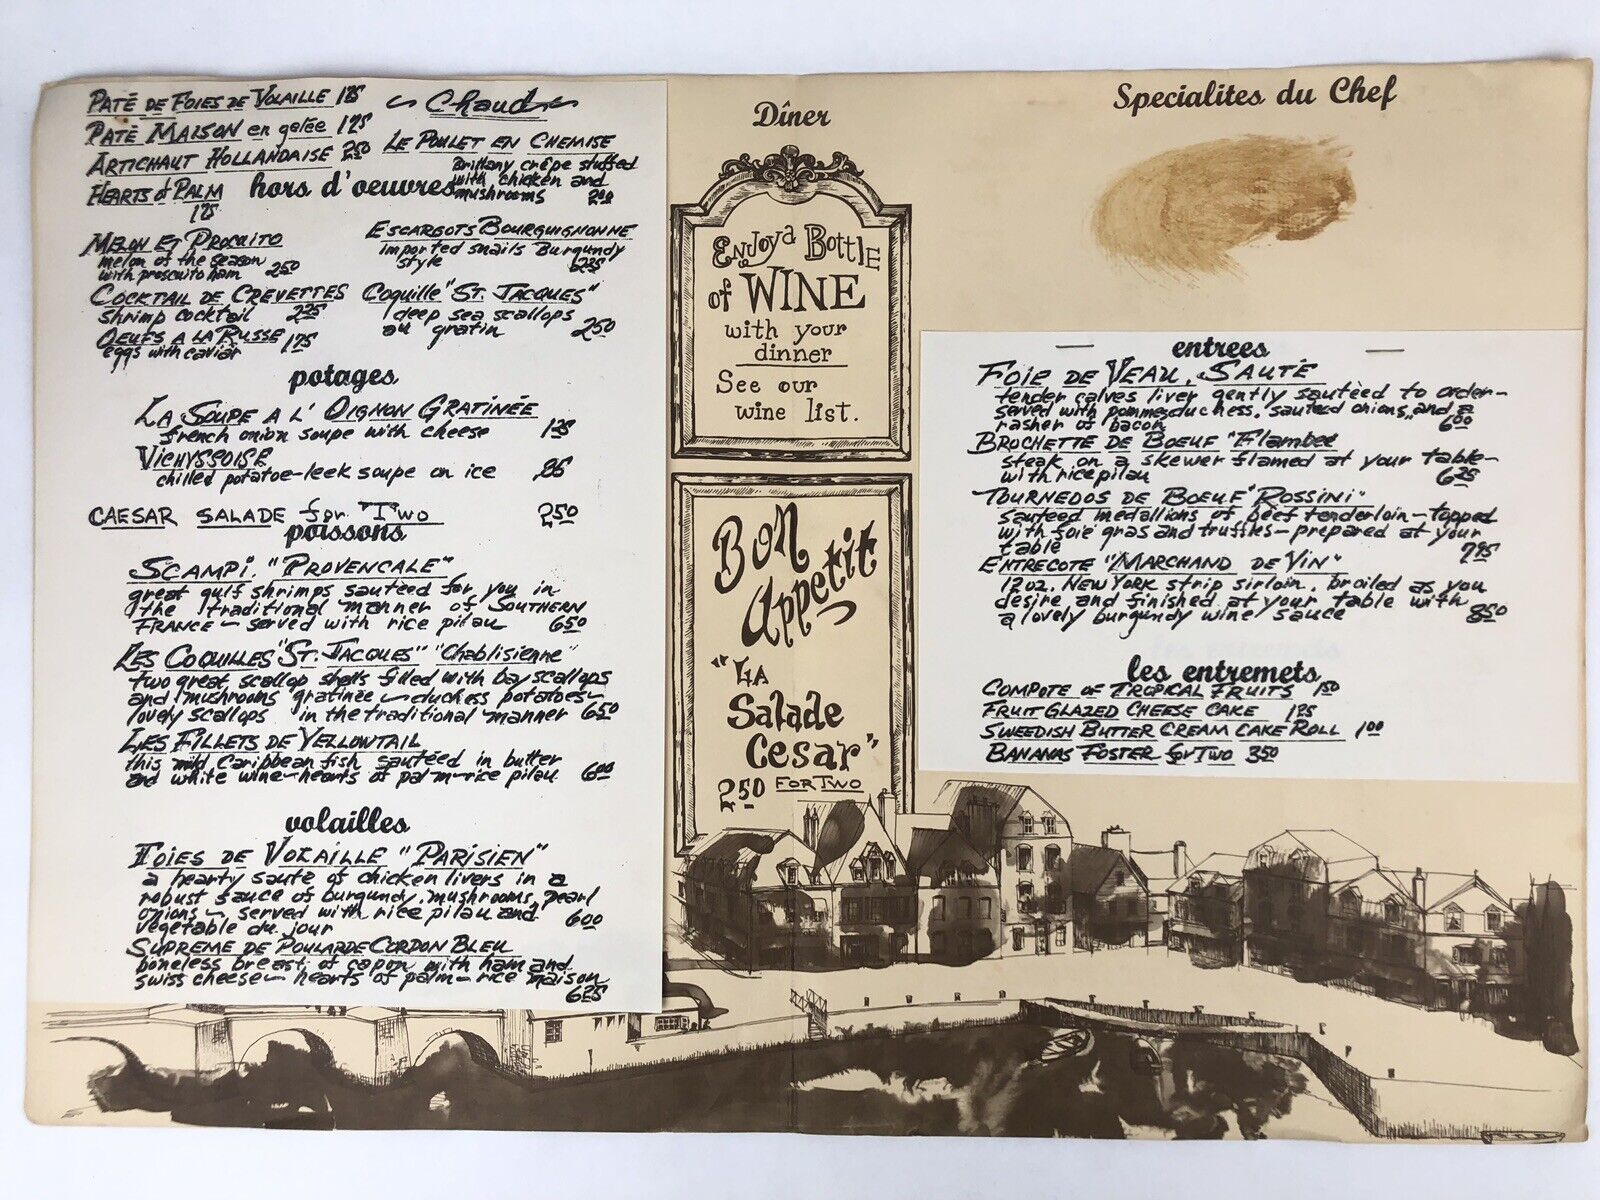 PATÉ DE FOIES DE VOLAILLE 1.75
PATÉ MAISON en gelée 1.75
ARTICHAUT HOLLANDAISE 2.50
HEARTS of PALM
1.75
hors d'oeuvres
MELON ET PROCUITO
melon of the season
with proscuito ham 2.50
COCKTAIL DE CREVETTES
shrimp cocktail 2.25
OEUFS A LA RUSSE
eggs with caviar 1.75
~ Chaud ~
LE POULET EN CHEMISE
Brittany crêpe stuffed
with chicken and
mushrooms
ESCARGOTS BOURGUIGNONNE
imported snails Burgundy
style
Coquille "ST. JACQUES"
deep sea scallops
au gratin 2.50
potages
LA SOUPE A L' OIGNON GRATINÉE
french onion soupe with cheese 1.25
VICHYSSOISE
chilled potatoe-leek soupe on ice
CAESAR SALADE for "Two 2.50
poissons
SCAMPI, "PROVENCALE"
great gulf shrimps sauteed for you in
the traditional manner of SOUTHERN
FRANCE - served with rice pilau 6.50
LES COQUILLES "ST. JACQUES" "Chablisienne"
two great scallop shells filled with bay scallops
and mushrooms gratinée - duchess potatoes-
lovely scallops in the traditional manner 6.50
LES FILLETS DE YELLOWTAIL
this mild Caribbean fish sautéed in butter
and white wine-hearts of palm-rice pilau 6.00
volailles
FOIES DE VOLAILLE "PARISIEN"
a hearty sauté of chicken livers in a
robust sauce of burgundy, mushrooms, pearl
onions - served with rice pilau and
vegetable du jour 6.00
SUPREME DE POULARDE CORDON BLEU
boneless breast of capon with ham and
swiss cheese - hearts of palm - rice maison
6.25
Dîner
ENJOY a BOTTLE
of WINE
with your
dinner
See our
wine list.
Bon
Appetit
"LA
Salade
Cesar"
2.50 FOR TWO
Specialites du Chef
entrees
FOIE DE VEAU, SAUTÉ
tender calves liver gently sautéed to order-
served with pommes duchess, sauteed onions, and a
rasher of bacon 6.00
BROCHETTE DE BOEUF "Flambee
steak on a skewer flamed at your table-
with rice pilau 6.25
TOURNEDOS DE BOEUF "ROSSINI"
sauteed medallions of beef tenderloin - topped
with foie gras and truffles - prepared at your
table 7.95
ENTRECOTE "MARCHAND DE VIN"
12 oz. NEW YORK strip sirloin, broiled as you
desire and finished at your table with
a lovely burgundy wine sauce 8.50
les entremets
COMPOTE OF TROPICAL FRUITS 1.50
FRUIT GLAZED CHEESE CAKE 1.25
SWEEDISH BUTTER CREAM CAKE ROLL 1.00
BANANAS FOSTER for Two 3.50